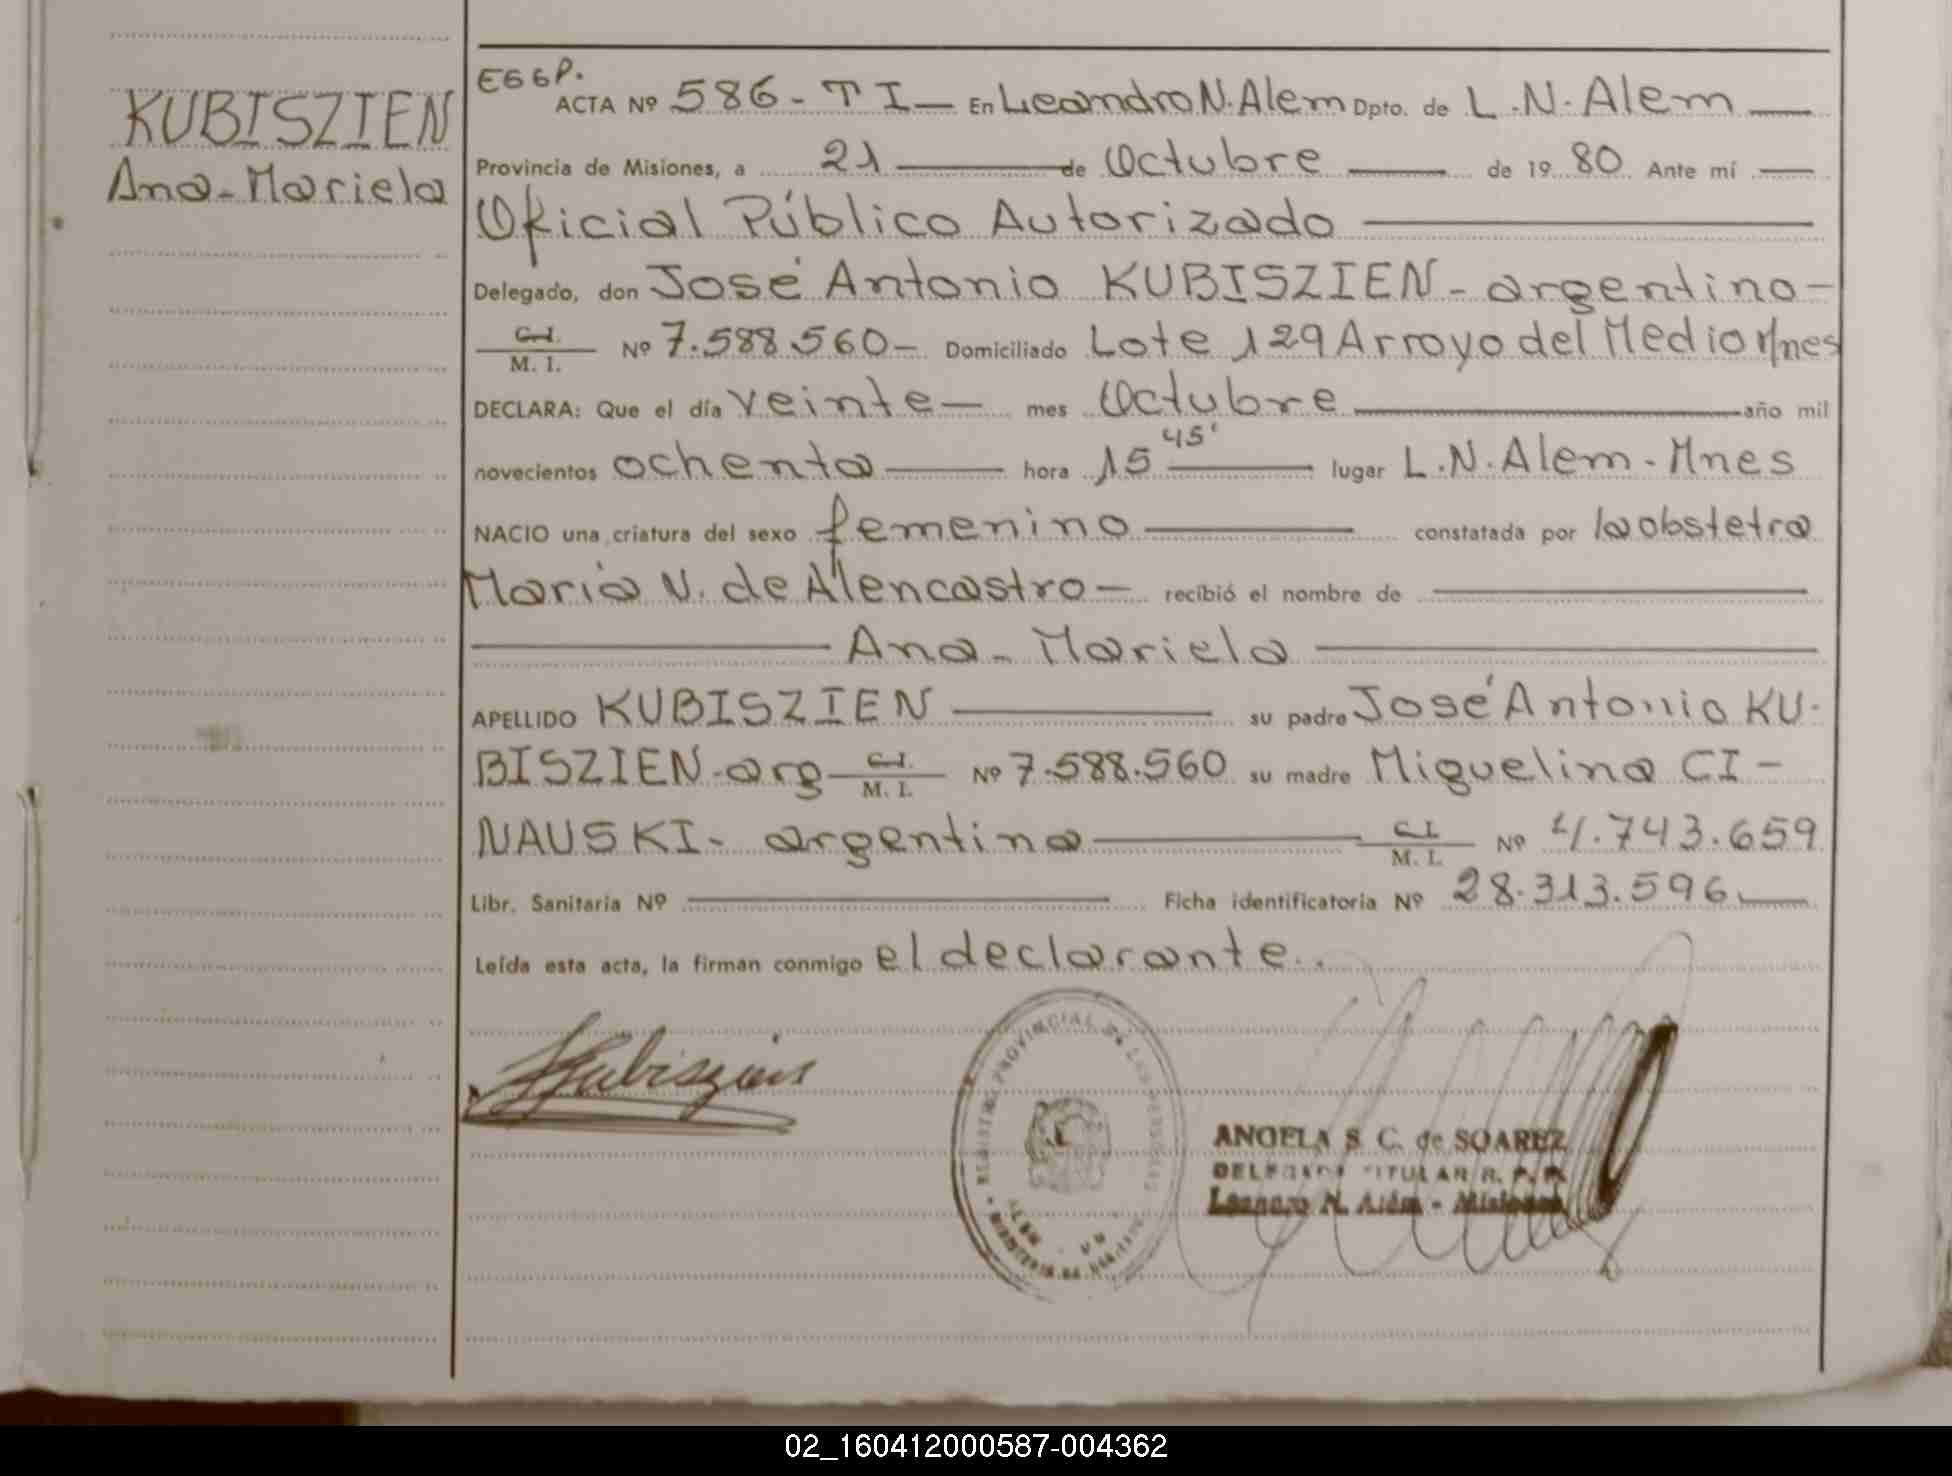 KUBISZIEN
Ana-Mariela
EGGP.
ACTA Nº 586-TI— En Leandro N. Alem Dpto. de L.N. Alem
Provincia de Misiones, a 21 de Octubre de 1980 Ante mí
Oficial Público Autorizado
Delegado, don José Antonio KUBISZIEN-argentino-
C.I. M. I. Nº 7.588.560- Domiciliado Lote 129 Arroyo del Medio M/nes
DECLARA: Que el día veinte— mes Octubre año mil
novecientos ochenta hora 15 45' lugar L.N. Alem-Mnes
NACIO una criatura del sexo femenino constatada por la obstetra
Maria N. de Alencastro— recibió el nombre de
Ana-Mariela
APELLIDO KUBISZIEN su padre José Antonio KU-
BISZIEN-arg C.I. M. I. Nº 7.588.560 su madre Miguelina CI-
NAUSKI- argentina C.I. M. I. Nº 4.743.659
Libr. Sanitaria Nº Ficha identificatoria Nº 28.313.596
Leída esta acta, la firman conmigo el declarante..
Kubiszien
REGISTRO PROVINCIAL DE LAS PERSONAS
ANGELA S. C. de SOAREZ
DELEGADA TITULAR R. P. P.
Leandro N. Além - Misiones
02_160412000587-004362